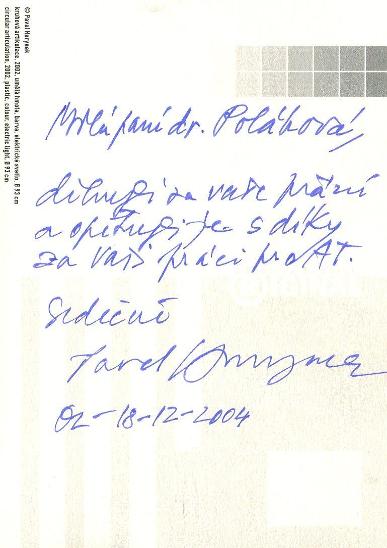 Milá paní dr. Poláková,
děkuji za vaše přání
a opětuji je s díky
za Vaši práci pro AT.
Srdečně
Pavel Herynek
Ol-18-12-2004
© Pavel Herynek
kruhová artikulace, 2002, umělá hmota, barva, elektrické světlo, Ø 93 cm
circular articulation, 2002, plastic, colour, electric light, Ø 93 cm